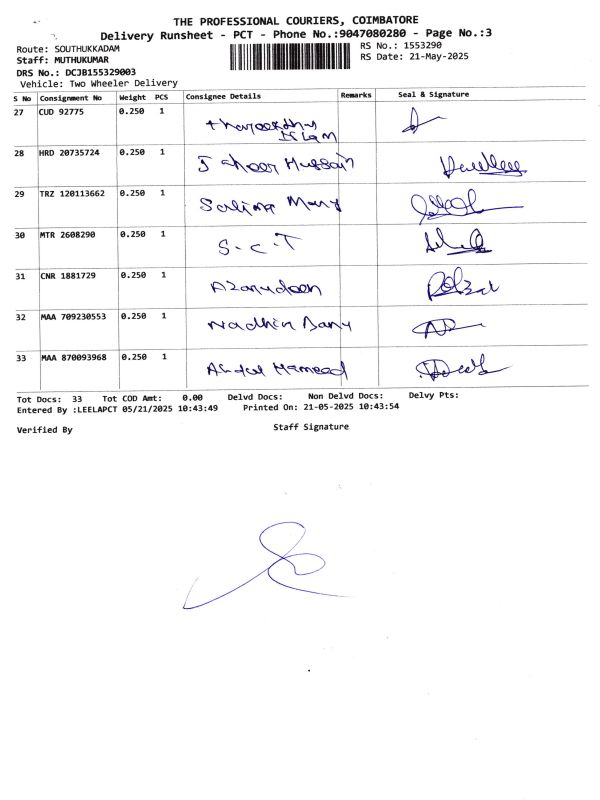 THE PROFESSIONAL COURIERS, COIMBATORE
Delivery Runsheet - PCT - Phone No.:9047080280 - Page No.:3
Route: SOUTHUKKADAM
RS No.: 1553290
Staff: MUTHUKUMAR
RS Date: 21-May-2025
DRS No.: DCJB155329003
Vehicle: Two Wheeler Delivery
S No Consignment No Weight PCS Consignee Details Remarks Seal & Signature
27 CUD 92775 0.250 1
Islam
28 HRD 20735724 0.250 1 Hussain
29 TRZ 120113662 0.250 1 Salima
30 MTR 2608290 0.250 1 S.C.T
31 CNR 1881729 0.250 1 Azarudeen
32 MAA 709230553 0.250 1 Nadhin Banu
33 MAA 870093968 0.250 1 Abdul Hameed
Tot Docs: 33 Tot COD Amt: 0.00 Delvd Docs: Non Delvd Docs: Delvy Pts:
Entered By :LEELAPCT 05/21/2025 10:43:49 Printed On: 21-05-2025 10:43:54
Verified By Staff Signature